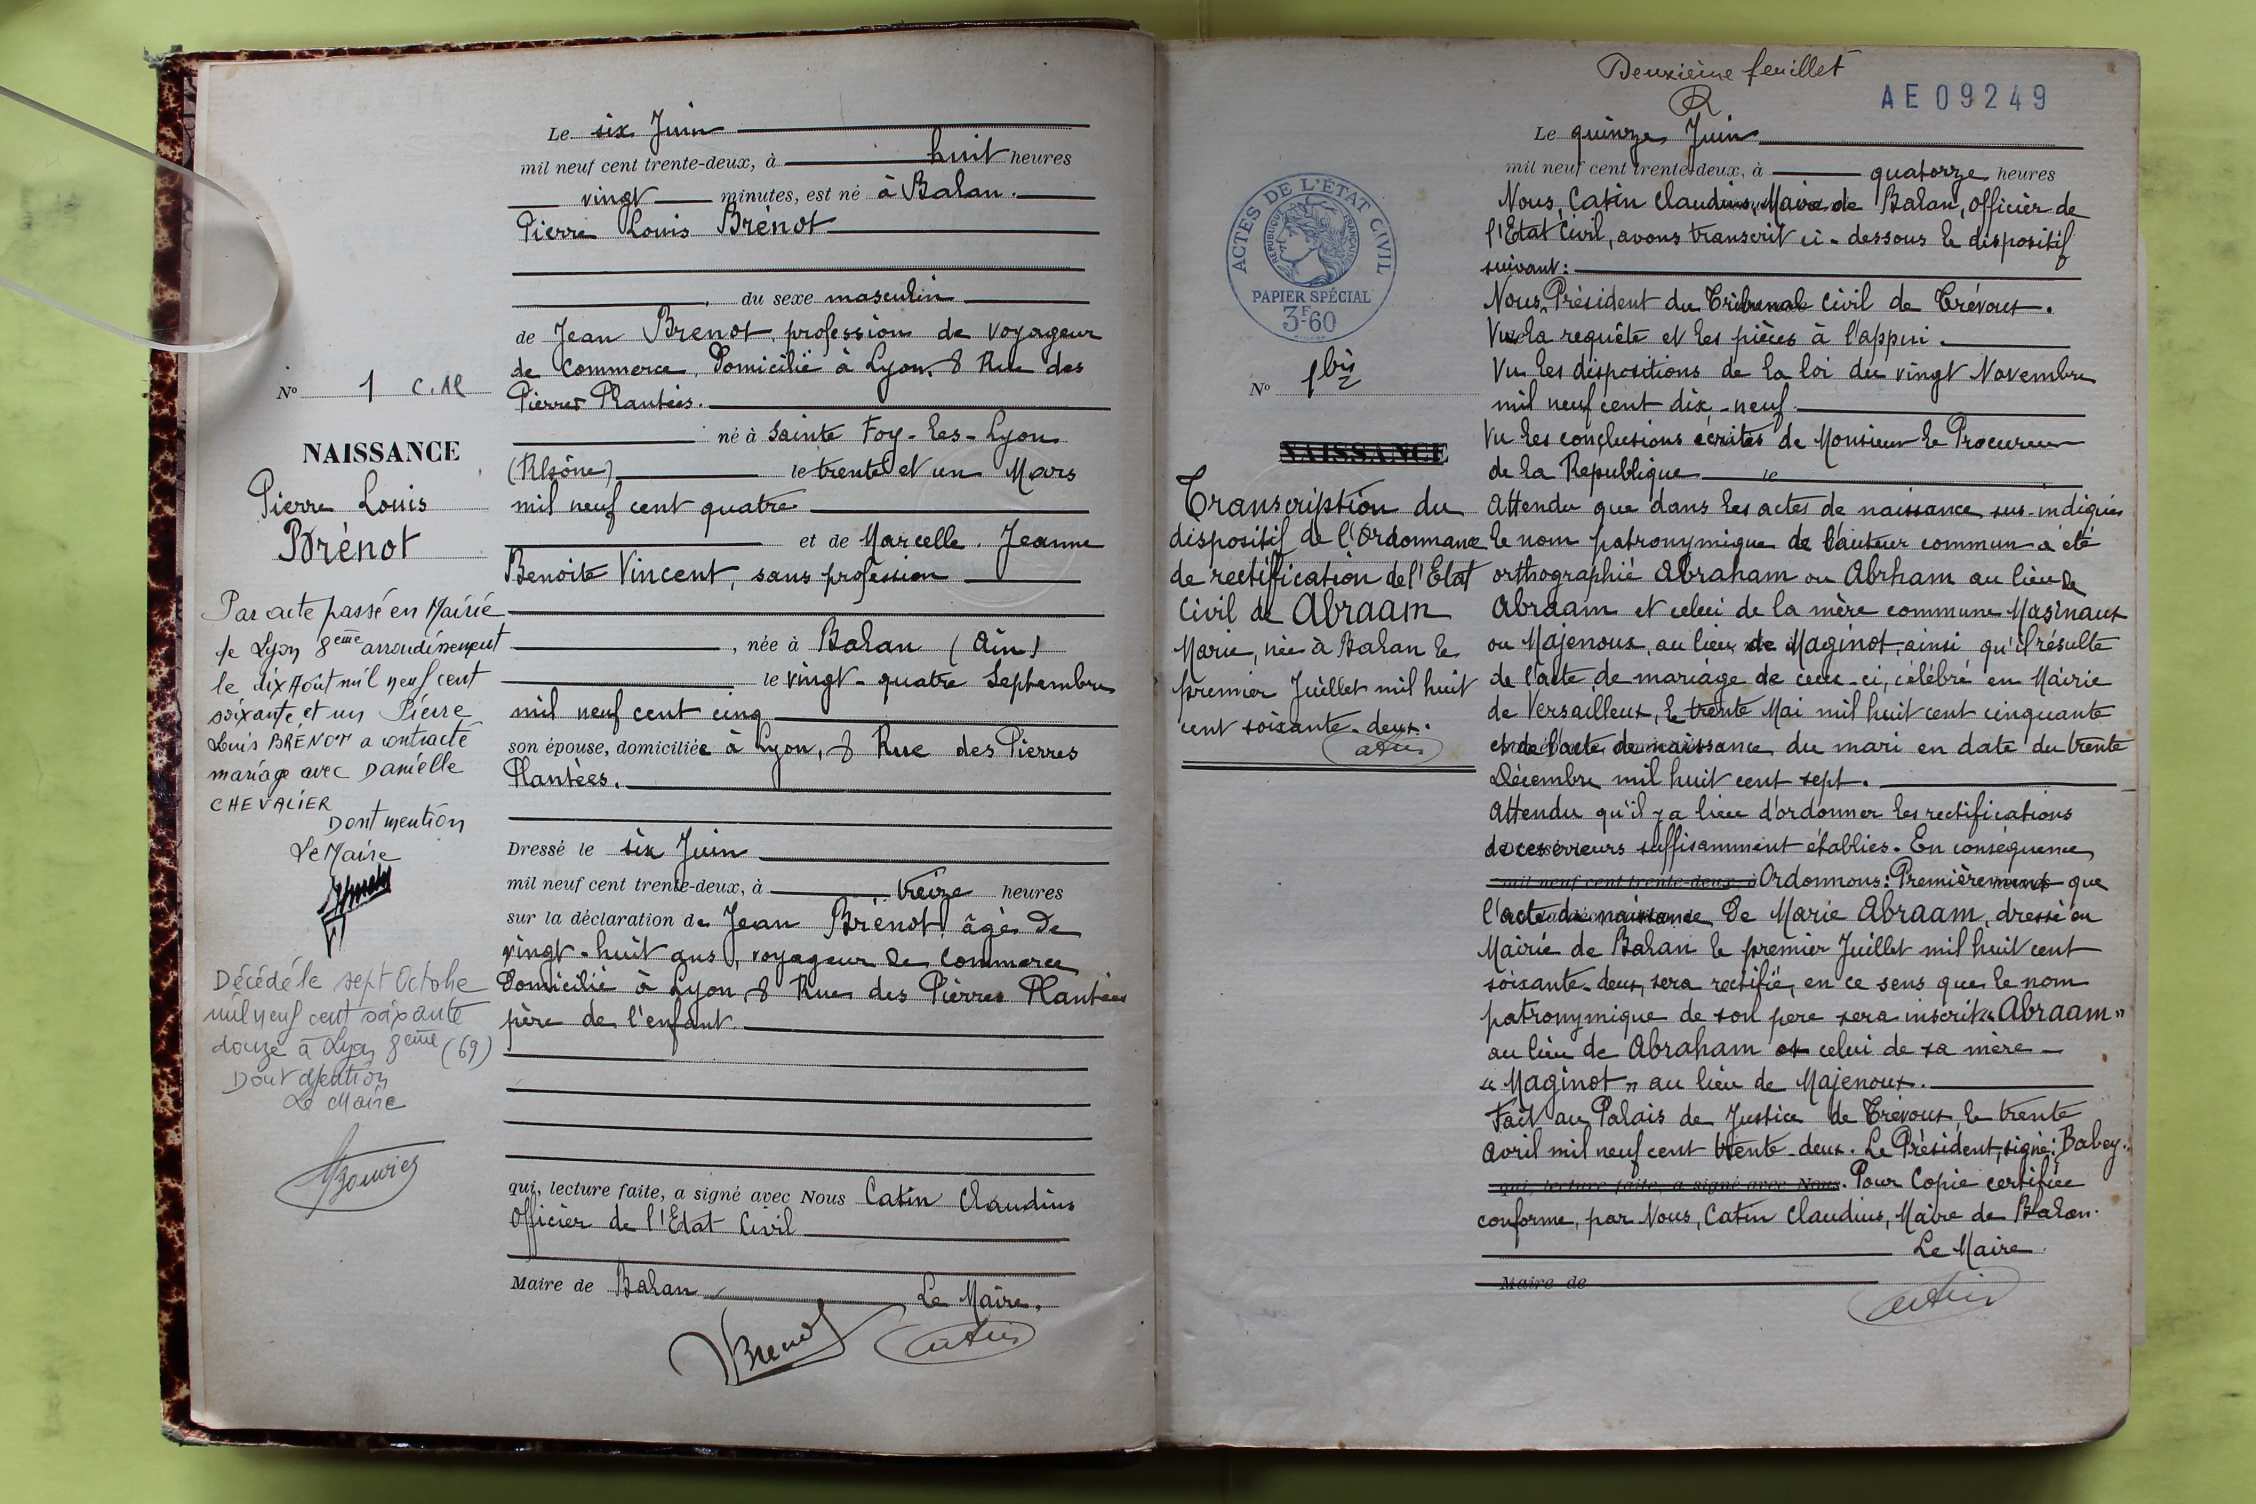 Le six Juin
mil neuf cent trente-deux, à huit heures
vingt minutes, est né à Balan.
Pierre Louis Brénot
du sexe masculin
de Jean Brenot, profession de voyageur
de commerce. Domicilié à Lyon. 8 Rue des
Pierres Plantées.
né à Sainte Foy-les-Lyon
(Rhône) le trente et un Mars
mil neuf cent quatre
et de Marcelle. Jeanne
Benoite Vincent, sans profession
, née à Balan (Ain)
le vingt-quatre Septembre
mil neuf cent cinq
son épouse, domiciliée à Lyon, 8 Rue des Pierres
Plantées.
Dressé le six Juin
mil neuf cent trente-deux, à treize heures
sur la déclaration de Jean Brénot âgé de
vingt-huit ans, voyageur de commerce
Domicilié à Lyon 8 Rue des Pierres Plantées
père de l'enfant.
qui, lecture faite, a signé avec Nous Catin Claudius
Officier de l'Etat Civil
Maire de Balan Le Maire.
JBrenot
Catin
N° 1 C.M
NAISSANCE
Pierre Louis
Brénot
Par acte passé en Mairie
de Lyon 8eme arrondissement
le dix Août mil neuf cent
soixante et un Pierre
Louis BRENOT a contracté
mariage avec Danielle
CHEVALIER
Dont mention
Le Maire
Décédé le sept Octobre
mil neuf cent soixante
douze à Lyon 8eme (69)
Dont Mention
Le Maire
Bouvier
Deuxième feuillet
R
AE09249
ACTES DE L'ÉTAT CIVIL
REPUBLIQUE FRANÇAISE
PAPIER SPÉCIAL
3F60
N° 1 bis
NAISSANCE
Transcription du
dispositif de l'Ordonnance
de rectification de l'Etat
Civil de Abraam
Marie, née à Balan le
premier Juillet mil huit
cent soixante-deux.
Catin
Le quinze Juin
mil neuf cent trente-deux, à quatorze heures
Nous, Catin Claudius, Maire de Balan, Officier de
l'Etat Civil, avons transcrit ci-dessous le dispositif
suivant:
Nous, Président du Tribunal Civil de Trévoux.
Vu la requête et les pièces à l'appui.
Vu les dispositions de la loi du vingt Novembre
mil neuf cent dix-neuf.
Vu les conclusions écrites de Monsieur le Procureur
de la République le
Attendu que dans les actes de naissance sus-indiqués
le nom patronymique de l'auteur commun a été
orthographié Abraham ou Abrham au lieu de
Abraam et celui de la mère commune Masinaux
ou Majenoux, au lieu de Maginot, ainsi qu'il résulte
de l'acte de mariage de ceux-ci, célébré en Mairie
de Versailleux, le trente Mai mil huit cent cinquante
et de l'acte de naissance du mari en date du trente
Décembre mil huit cent sept.
Attendu qu'il y a lieu d'ordonner les rectifications
de ces erreurs suffisamment établies. En conséquence
mil neuf cent trente-deux, à Ordonnons: Premièrement que
l'acte de naissance de Marie Abraam, dressé en
Mairie de Balan le premier Juillet mil huit cent
soixante-deux, sera rectifié, en ce sens que le nom
patronymique de son père sera inscrit « Abraam »
au lieu de Abraham et celui de sa mère -
« Maginot » au lieu de Majenoux.
Fait au Palais de Justice de Trévoux, le trente
Avril mil neuf cent trente-deux. Le Président, signé: Babey.
qui, lecture faite, a signé avec Nous. Pour Copie certifiée
conforme, par Nous, Catin Claudius, Maire de Balan.
Le Maire.
Maire de
Catin